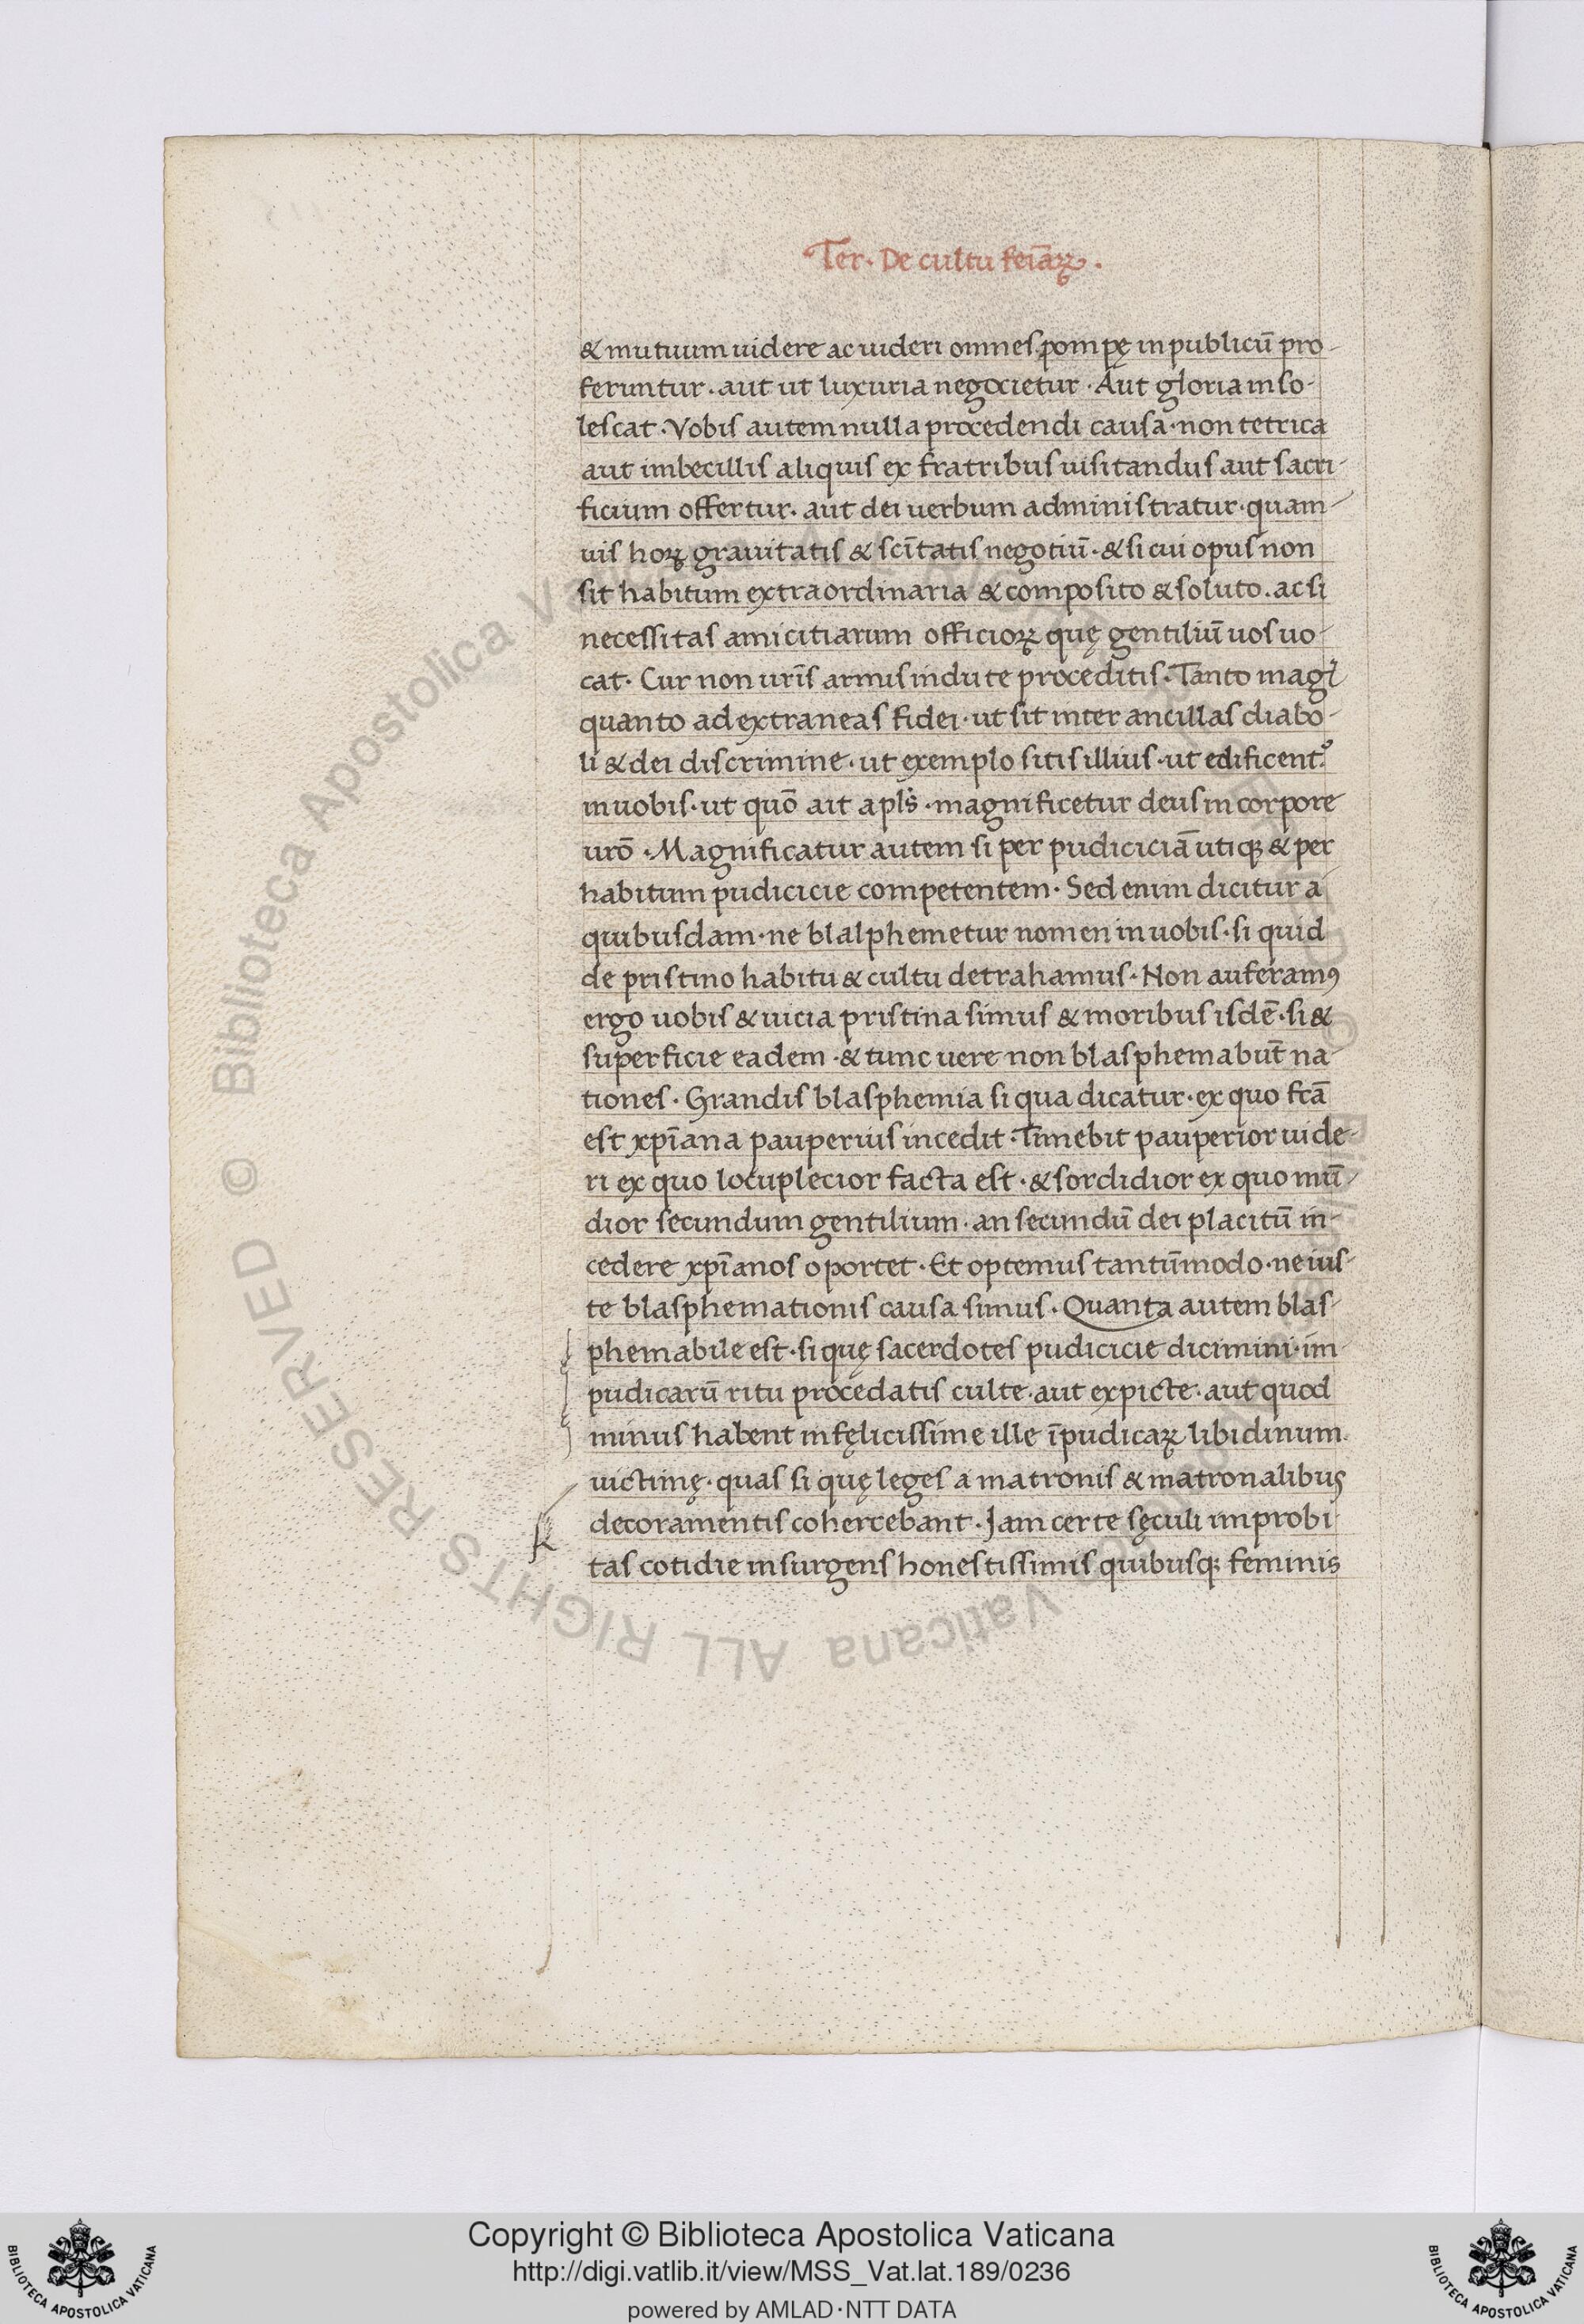 Ter. De cultu feīaꝝ.
& mutuum uidere ac uideri omnes pompę in publicū pro-
feruntur. aut ut luxuria negocietur. Aut gloria inso-
lescat. Vobis autem nulla procedendi causa. non tetrica
aut imbecillis aliquis ex fratribus uisitandus aut sacri-
ficium offertur. aut dei uerbum administratur. quam-
uis hoꝝ grauitatis & scītatis negotiū. & si cui opus non
sit habitum extraordinaria & composito & soluto. ac si
necessitas amicitiarum officioꝝ quę gentiliū uos uo-
cat. Cur non urīs armis indute proceditis. Tanto magi
quanto ad extraneas fidei. ut sit inter ancillas diabo-
li & dei discrimine. ut exemplo sitis illius. ut edificent᷑
in uobis. ut quō ait apls̄. magnificetur deus in corpore
urō. Magnificatur autem si per pudiciciā utiqꝫ & per
habitum pudicicie competentem. Sed enim dicitur a
quibusdam. ne blalphemetur nomen in uobis. si quid
de pristino habitu & cultu detrahamus. Non auferamꝯ
ergo uobis & uicia pristina simus & moribus isdē. si &
superficie eadem. & tunc uere non blasphemabūt na-
tiones. Grandis blasphemia si qua dicatur. ex quo fcā
est xpīana pauperius incedit. Timebit pauperior uide-
ri ex quo locuplecior facta est. & sordidior ex quo mū-
dior secundum gentilium. an secundū dei placitū in-
cedere xpīanos oportet. Et optemus tantūmodo. ne ius-
te blasphemationis causa simus. Quanta autem blas-
phemabile est. si quę sacerdotes pudicicie dicimini. im-
pudicarū ritu procedatis culte. aut expicte. aut quod
minus habent infęlicissime ille īpudicaꝝ libidinum.
uictimę. quas si quę leges a matronis & matronalibus
decoramentis cohercebant. Jam certe sęculi improbi-
tas cotidie insurgens honestissimis quibusqꝫ feminis
© Biblioteca Apostolica Vaticana
ALL RIGHTS RESERVED
Copyright © Biblioteca Apostolica Vaticana
http://digi.vatlib.it/view/MSS_Vat.lat.189/0236
powered by AMLAD·NTT DATA
BIBLIOTECA APOSTOLICA VATICANA
BIBLIOTECA APOSTOLICA VATICANA